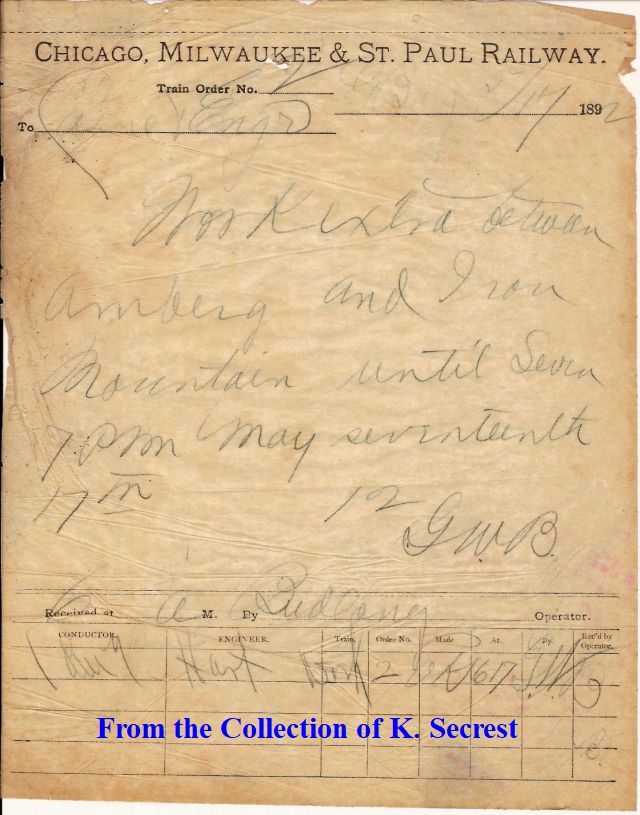 CHICAGO, MILWAUKEE & ST. PAUL RAILWAY.
Train Order No. 2
5/17 1892
To Engr
Work extra between
Amberg and Iron
Mountain until Seven
7 PM May seventeenth
17th 12
G.W.B.
Received at M. By Operator.
CONDUCTOR. ENGINEER. Train. Order No. Made At. By. Rec'd by Operator.
Hart Work 2 OK 617
From the Collection of K. Secrest